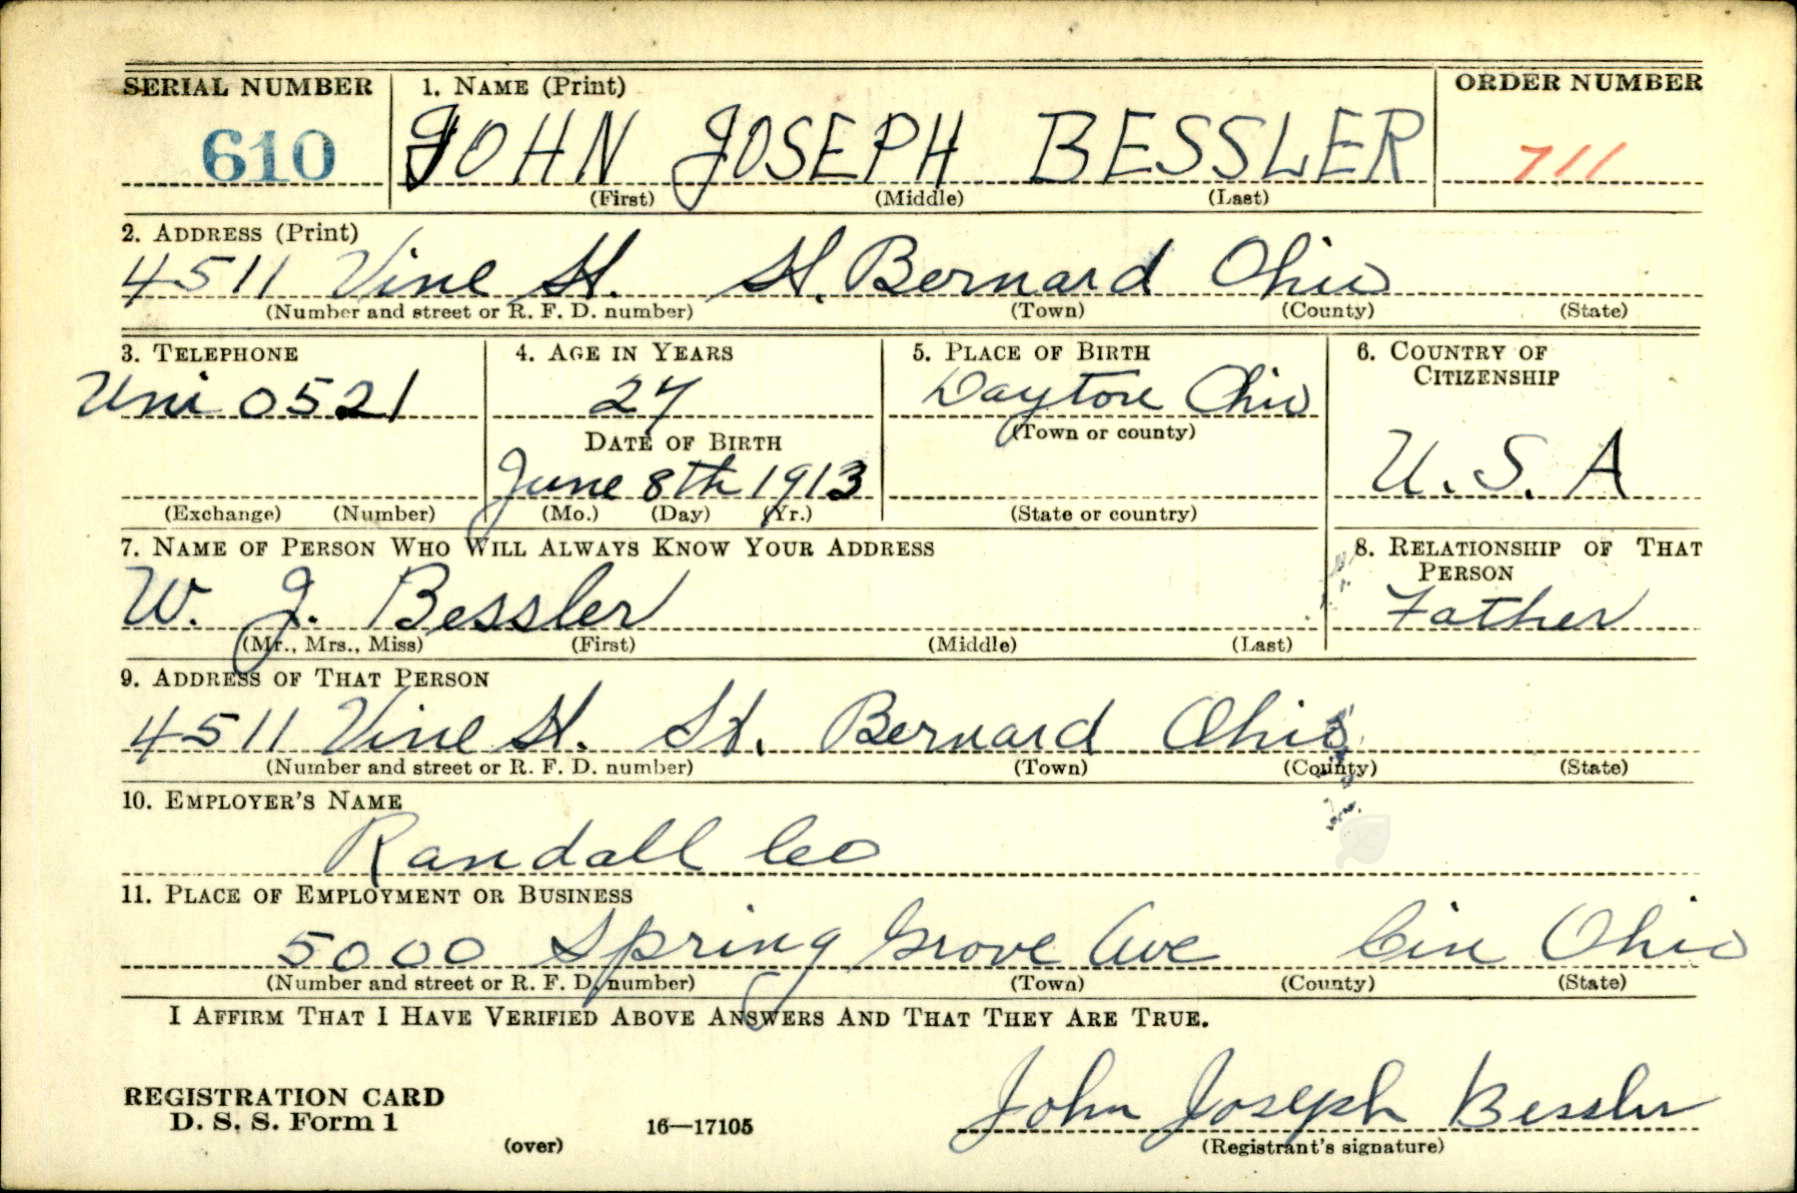 SERIAL NUMBER 1. NAME (Print) ORDER NUMBER
610 JOHN JOSEPH BESSLER 711
(First) (Middle) (Last)
2. ADDRESS (Print)
4511 Vine St. St. Bernard Ohio
(Number and street or R. F. D. number) (Town) (County) (State)
3. TELEPHONE 4. AGE IN YEARS 5. PLACE OF BIRTH 6. COUNTRY OF CITIZENSHIP
Uni 0521 27 Dayton Ohio
DATE OF BIRTH (Town or county)
June 8th 1913 U.S.A
(Exchange) (Number) (Mo.) (Day) (Yr.) (State or country)
7. NAME OF PERSON WHO WILL ALWAYS KNOW YOUR ADDRESS 8. RELATIONSHIP OF THAT PERSON
W. J. Bessler Father
(Mr., Mrs., Miss) (First) (Middle) (Last)
9. ADDRESS OF THAT PERSON
4511 Vine St. St. Bernard Ohio
(Number and street or R. F. D. number) (Town) (County) (State)
10. EMPLOYER'S NAME
Randall Co
11. PLACE OF EMPLOYMENT OR BUSINESS
5000 Spring Grove Ave Cin Ohio
(Number and street or R. F. D. number) (Town) (County) (State)
I AFFIRM THAT I HAVE VERIFIED ABOVE ANSWERS AND THAT THEY ARE TRUE.
REGISTRATION CARD
D. S. S. Form 1 16—17105 John Joseph Bessler
(over) (Registrant's signature)